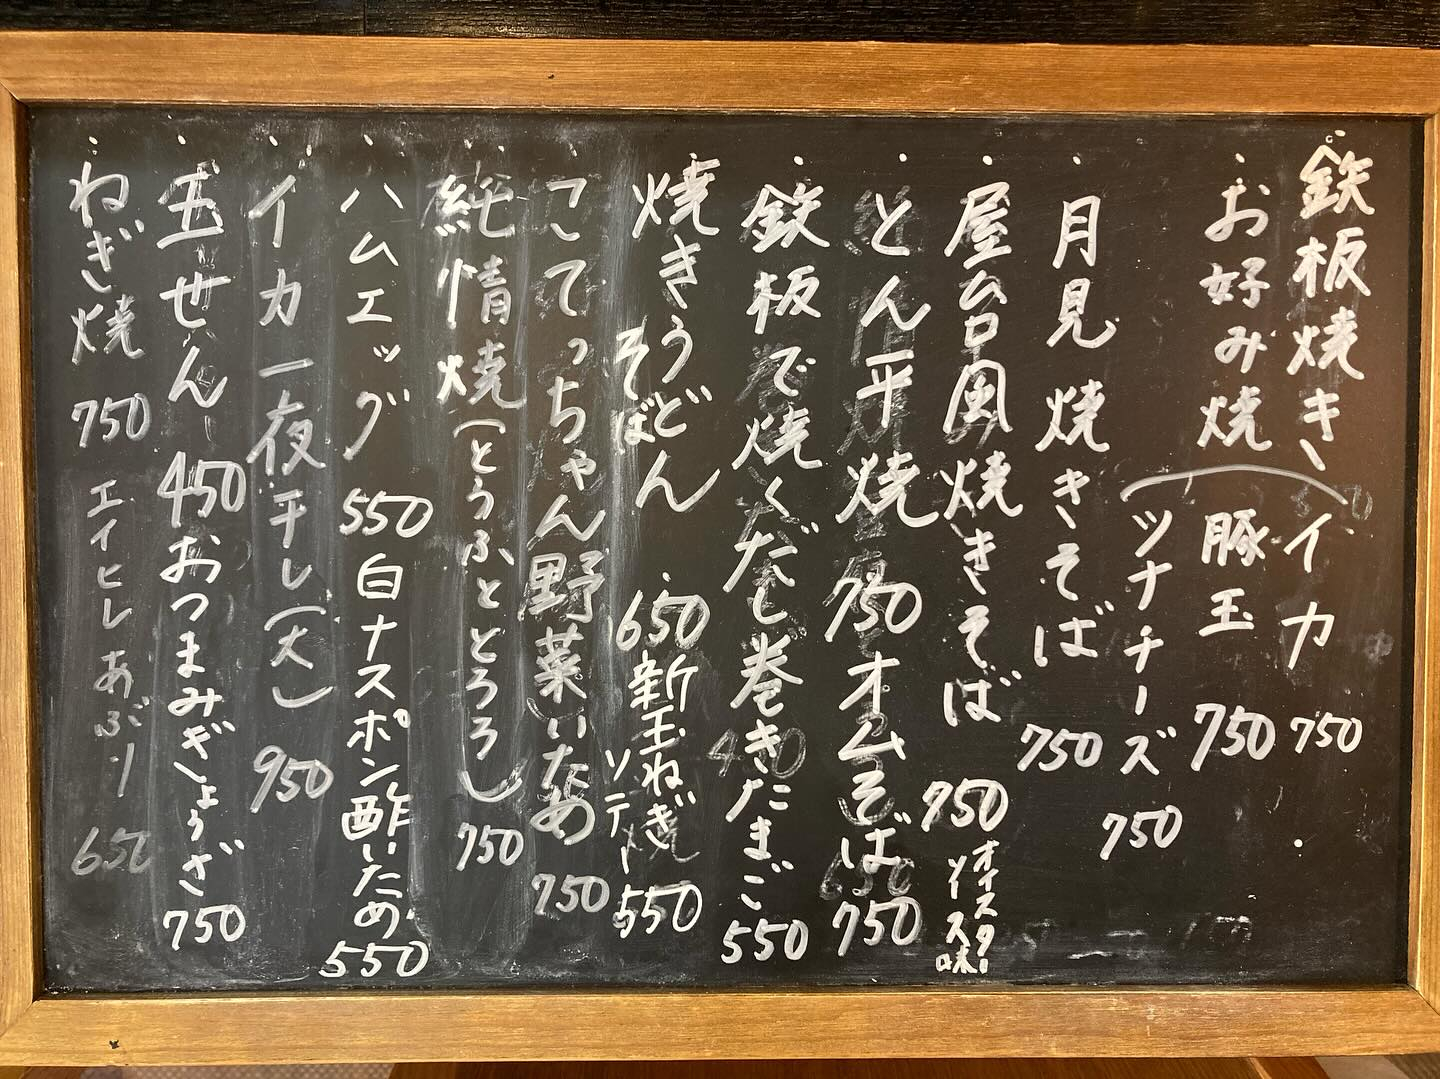 鉄板焼き
お好み焼
イカ 750
豚玉 750
ツナチーズ 750
月見焼きそば 750
屋台風焼きそば 750
オイスターソース味
とん平焼 750
オムそば 750
鉄板で焼くだし巻きたまご 550
焼きうどん
そば 650
新玉ねぎ
ソテー 550
こてっちゃん野菜いため 750
純情焼(とうふととろろ) 750
ハムエッグ 550
白ナスポン酢いため 550
イカ一夜干し(大) 950
玉せん 450
おつまみぎょうざ 750
ねぎ焼 750
エイヒレあぶり 650